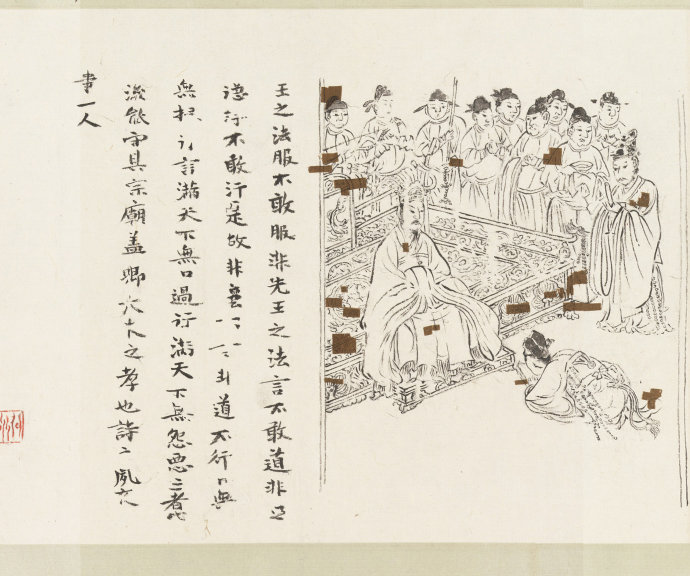 王之法服不敢服非先王之法言不敢道非
德行不敢行是故非 道不行口無
無擇 言滿天下無口過行滿天下無怨惡三者
能守其宗廟蓋卿大夫之孝也詩 夙夜
事一人